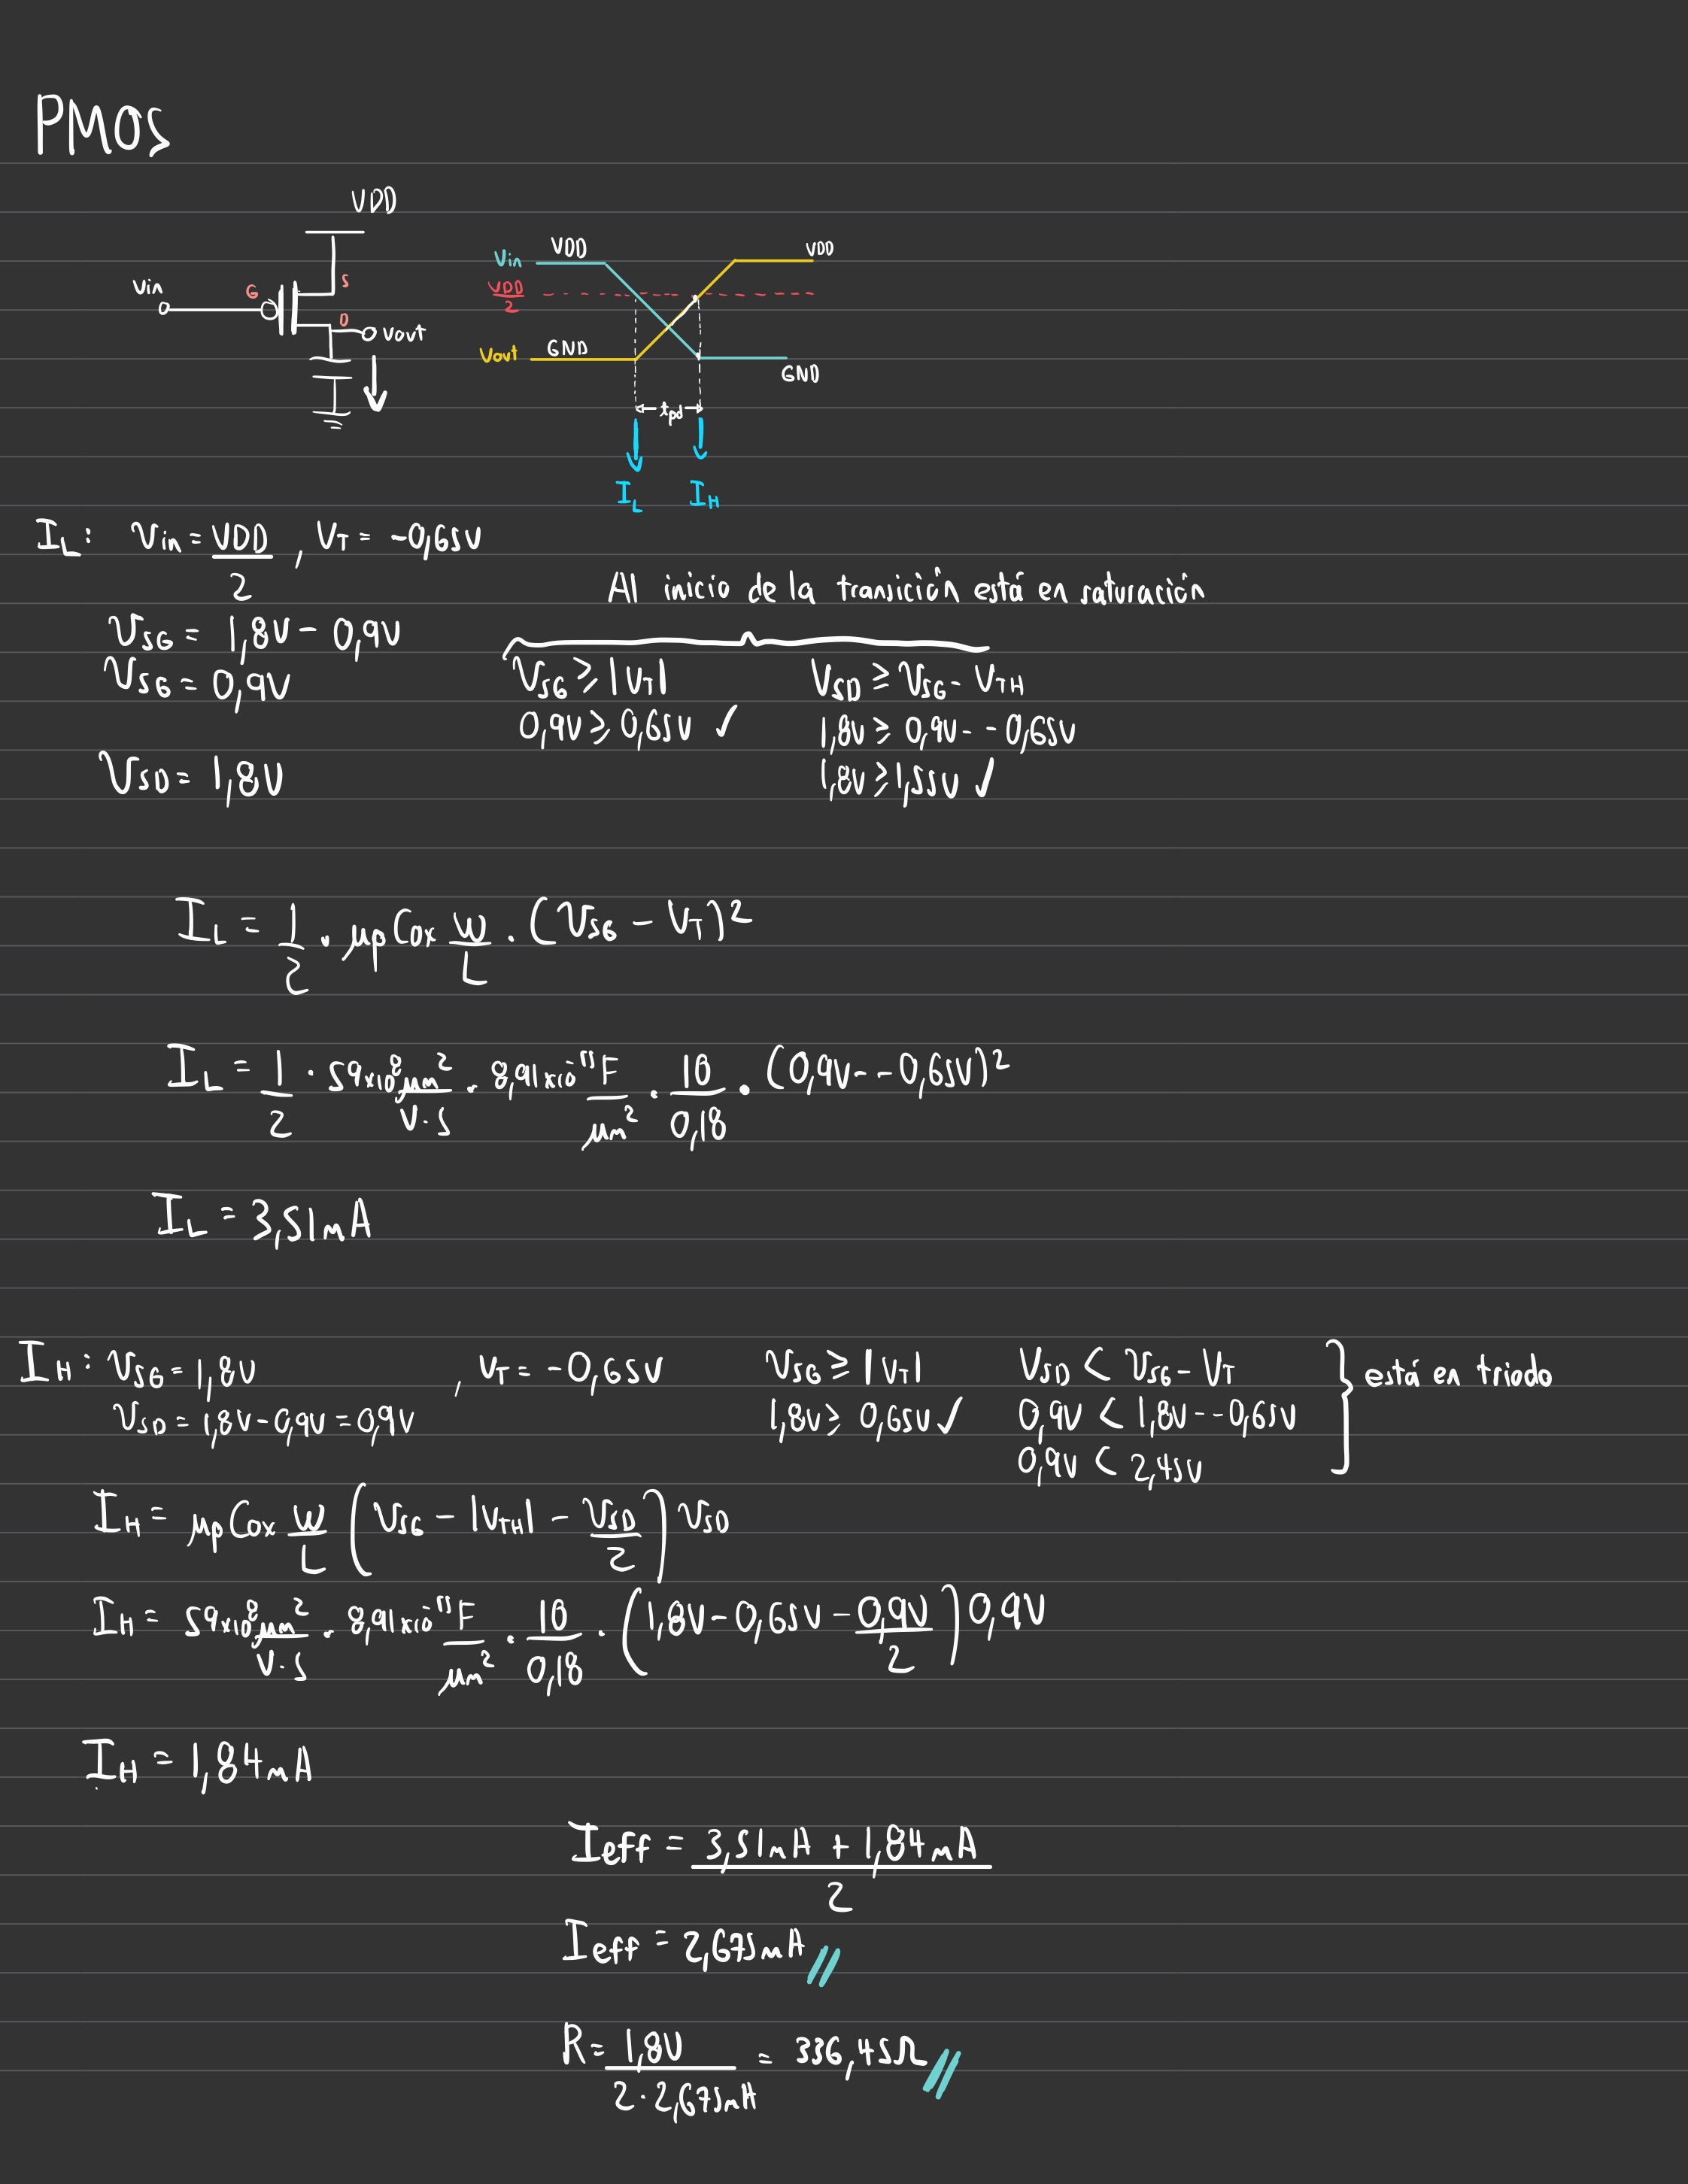 PMOS
VDD
Vin
G
S
D
Vout
Vin VDD VDD
VDD/2
Vout GND GND
tpd
I_L I_H
I_L: Vin = VDD/2 , V_T = -0,65V
Al inicio de la transición está en saturación
V_SG = 1,8V - 0,9V
V_SG = 0,9V V_SG ≥ |V_T| V_SD ≥ V_SG - V_TH
0,9V ≥ 0,65V ✓ 1,8V ≥ 0,9V - -0,65V
V_SD = 1,8V 1,8V ≥ 1,55V ✓
I_L = 1/2 · μpCox W/L · (V_SG - V_T)²
I_L = 1/2 · 59x10⁸ μm²/V·s · 8,91x10⁻¹⁵ F/μm² · 10/0,18 · (0,9V - -0,65V)²
I_L = 3,51mA
I_H: V_SG = 1,8V , V_T = -0,65V V_SG ≥ |V_T| V_SD < V_SG - V_T } está en triodo
V_SD = 1,8V - 0,9V = 0,9V 1,8V ≥ 0,65V ✓ 0,9V < 1,8V - -0,65V
0,9V < 2,45V
I_H = μpCox W/L (V_SG - |V_TH| - V_SD/2) V_SD
I_H = 59x10⁸ μm²/V·s · 8,91x10⁻¹⁵ F/μm² · 10/0,18 · (1,8V - 0,65V - 0,9V/2) 0,9V
I_H = 1,84mA
Ieff = (3,51mA + 1,84mA)/2
Ieff = 2,675mA
R = 1,8V/(2·2,675mA) = 336,45Ω